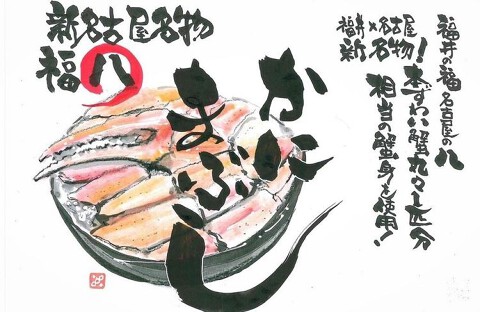 新名古屋名物
福八
かに
まぶし
福井×名古屋
新名物!
福井の福 名古屋の八
本ずわい蟹丸々1匹分
相当の蟹身を使用!